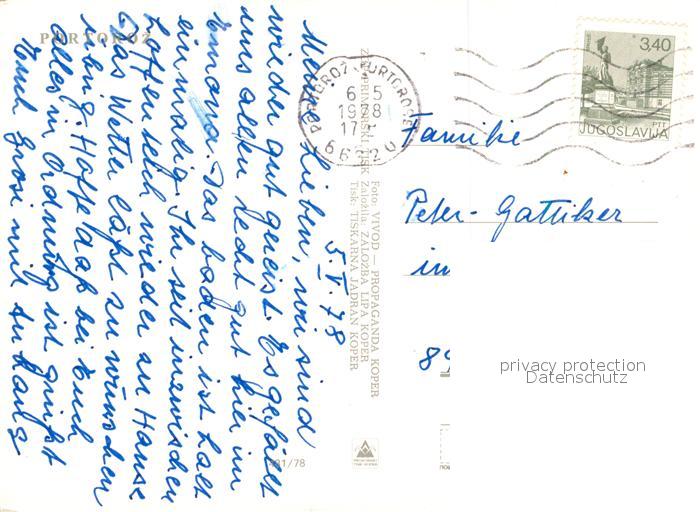 PORTOROŽ
5.V.78
Meine Lieben, wir sind
wieder gut gereist. Es gefällt
uns allen recht gut hier im
Emona. Das baden ist halt
einmalig. Ihr seit inzwischen
hoffentlich wieder zu Hause
Das Wetter läßt zu wünschen
übrig. Hoffe daß bei Euch
alles in Ordnung ist grüßt
Euch Grosi mit
Foto: VIVOD — PROPAGANDA KOPER
Založila: ZALOŽBA LIPA KOPER
Tisk: TISKARNA JADRAN KOPER
/78
PORTOROŽ-PORTOROSE
6 5
1978
17
66320
3,40
PTT
JUGOSLAVIJA
Familie
Peter-Gattiker
in
89
privacy protection
Datenschutz